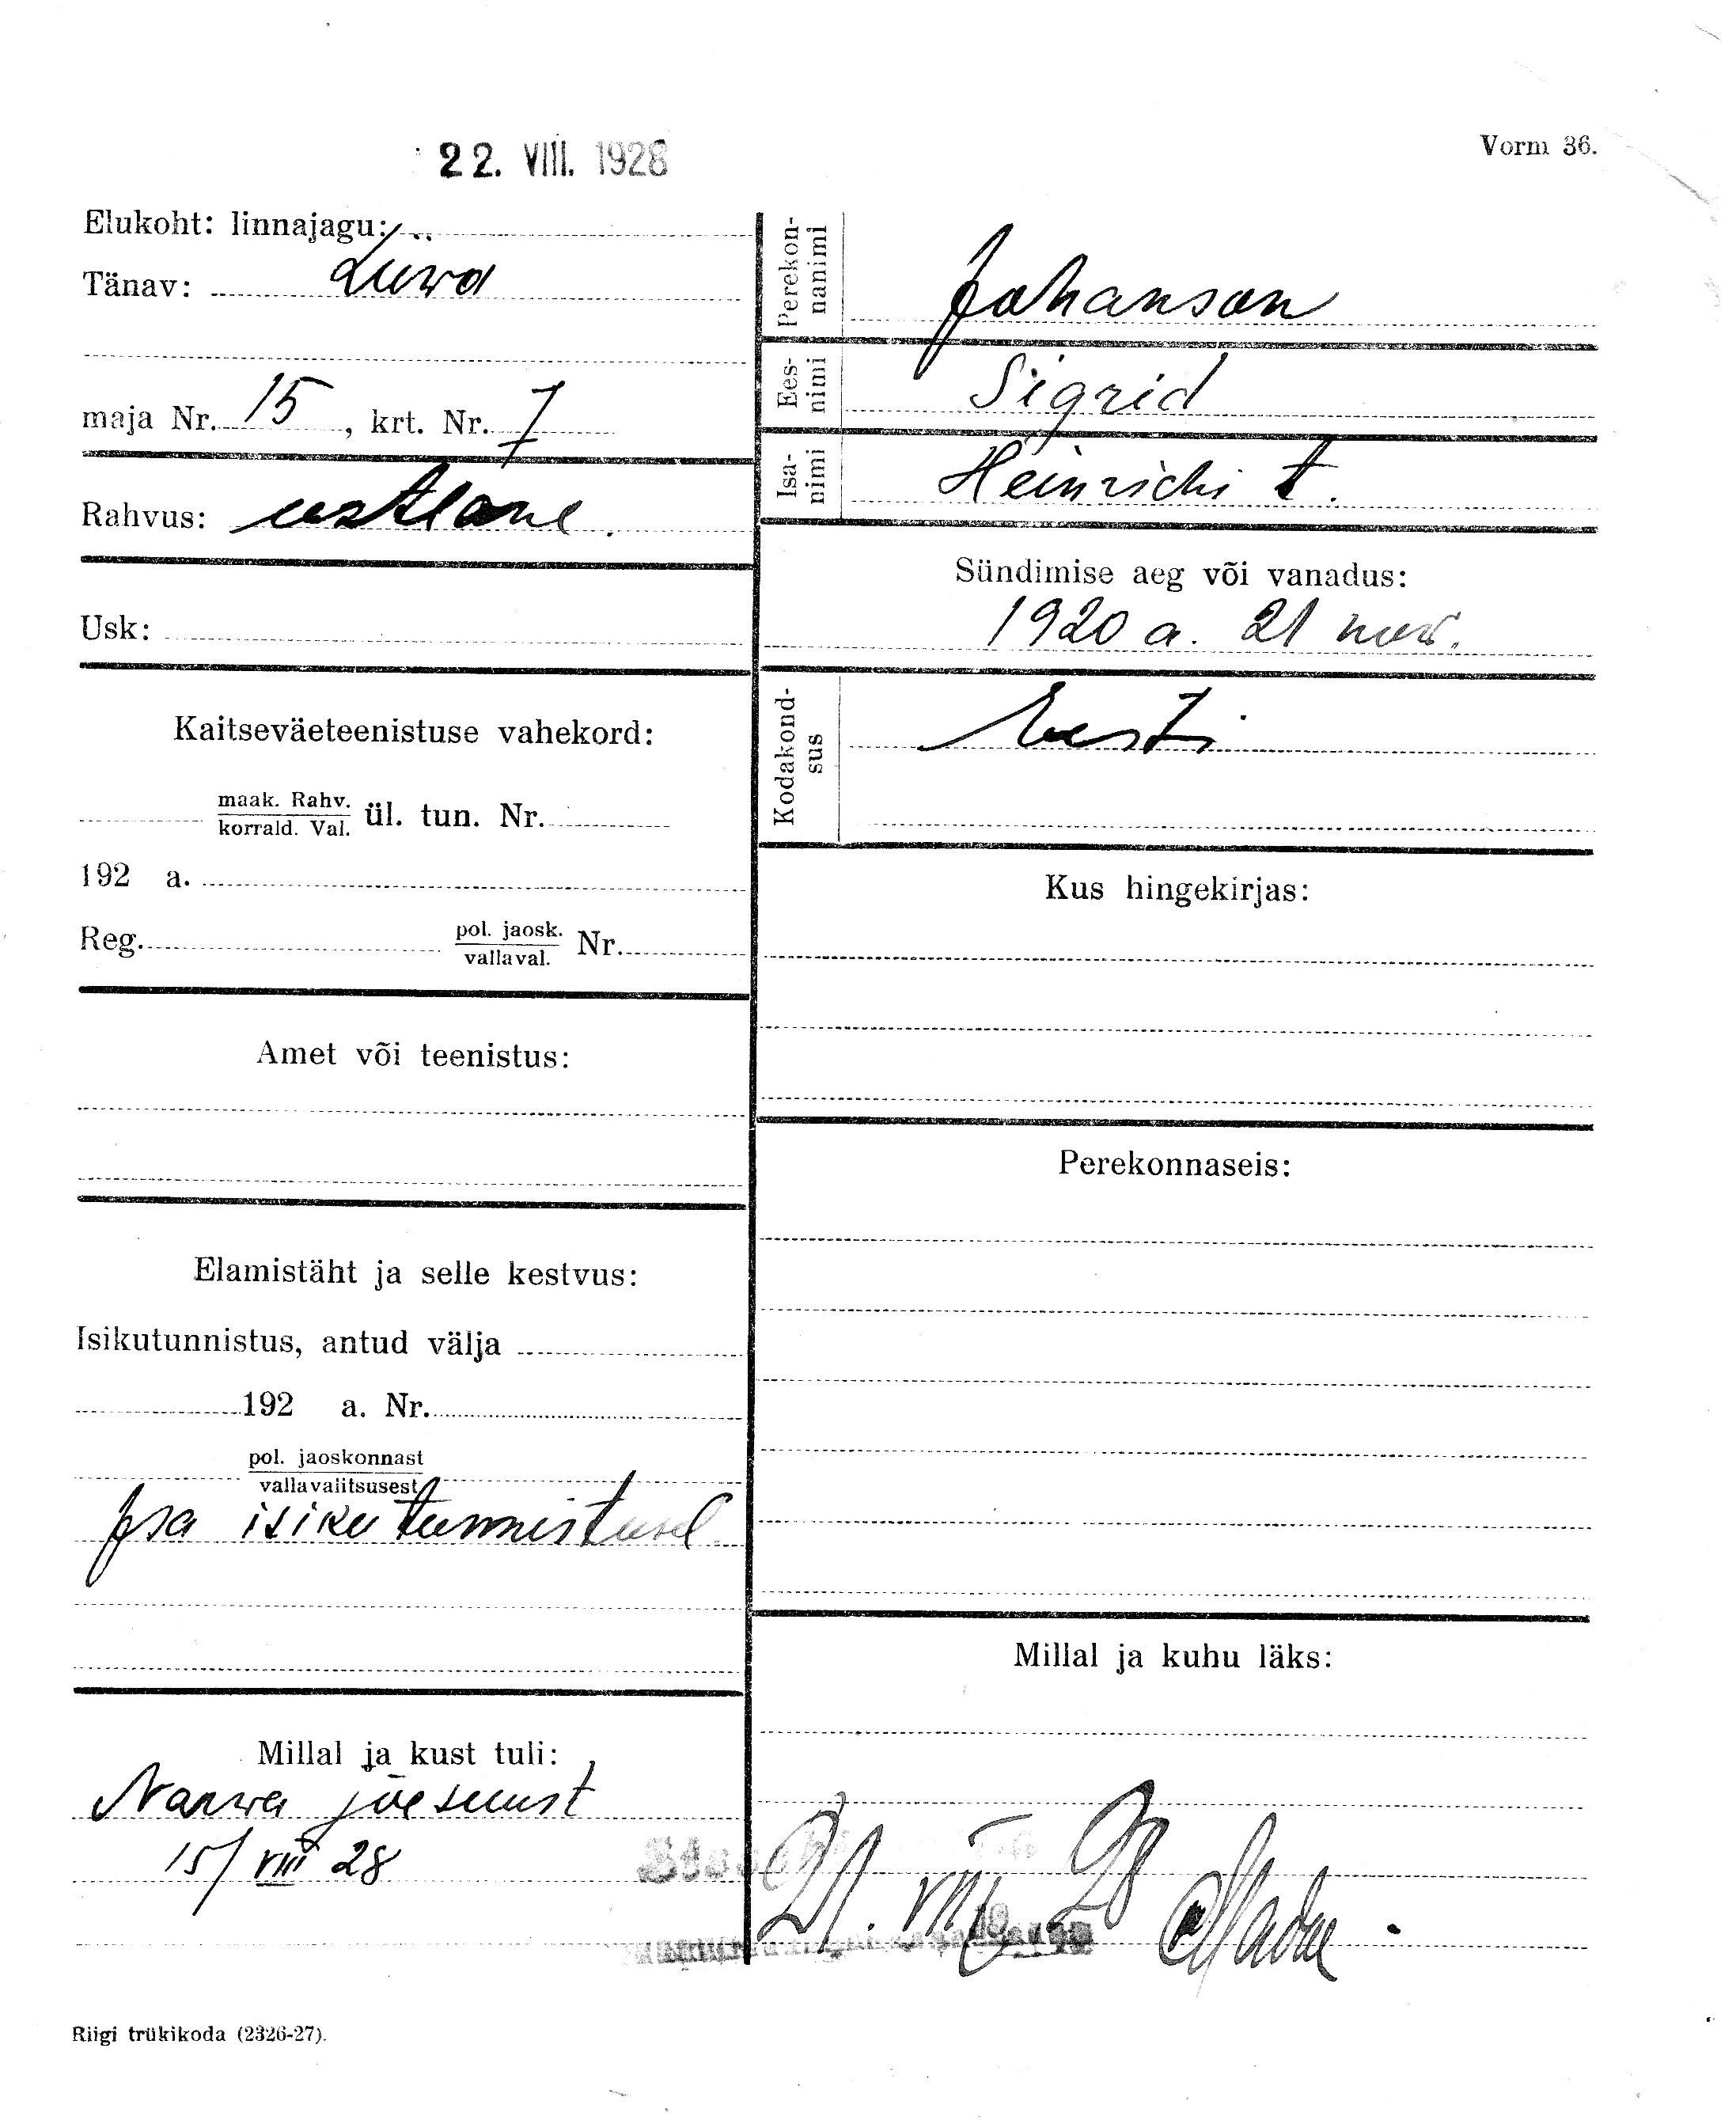 22. VIII. 1928
Vorm 36.
Elukoht: linnajagu:
Tänav: Liiwa
maja Nr. 15, krt. Nr. 7
Rahvus: eestlane.
Usk:
Kaitseväeteenistuse vahekord:
maak. Rahv.
korrald. Val. ül. tun. Nr.
192 a.
Reg. pol. jaosk. Nr.
vallaval.
Amet või teenistus:
Elamistäht ja selle kestvus:
Isikutunnistus, antud välja
192 a. Nr.
pol. jaoskonnast
vallavalitsusest
Isa isikutunnistusel
Millal ja kust tuli:
Narwa jõesuust
15/VIII 28
Perekon-
nanimi
Johanson
Ees-
nimi
Sigrid
Isa-
nimi
Heinrichi t.
Sündimise aeg või vanadus:
1920 a. 21 now.
Kodakond-
sus
Eesti
Kus hingekirjas:
Perekonnaseis:
Millal ja kuhu läks:
21. VIII 28
Riigi trükikoda (2326-27).